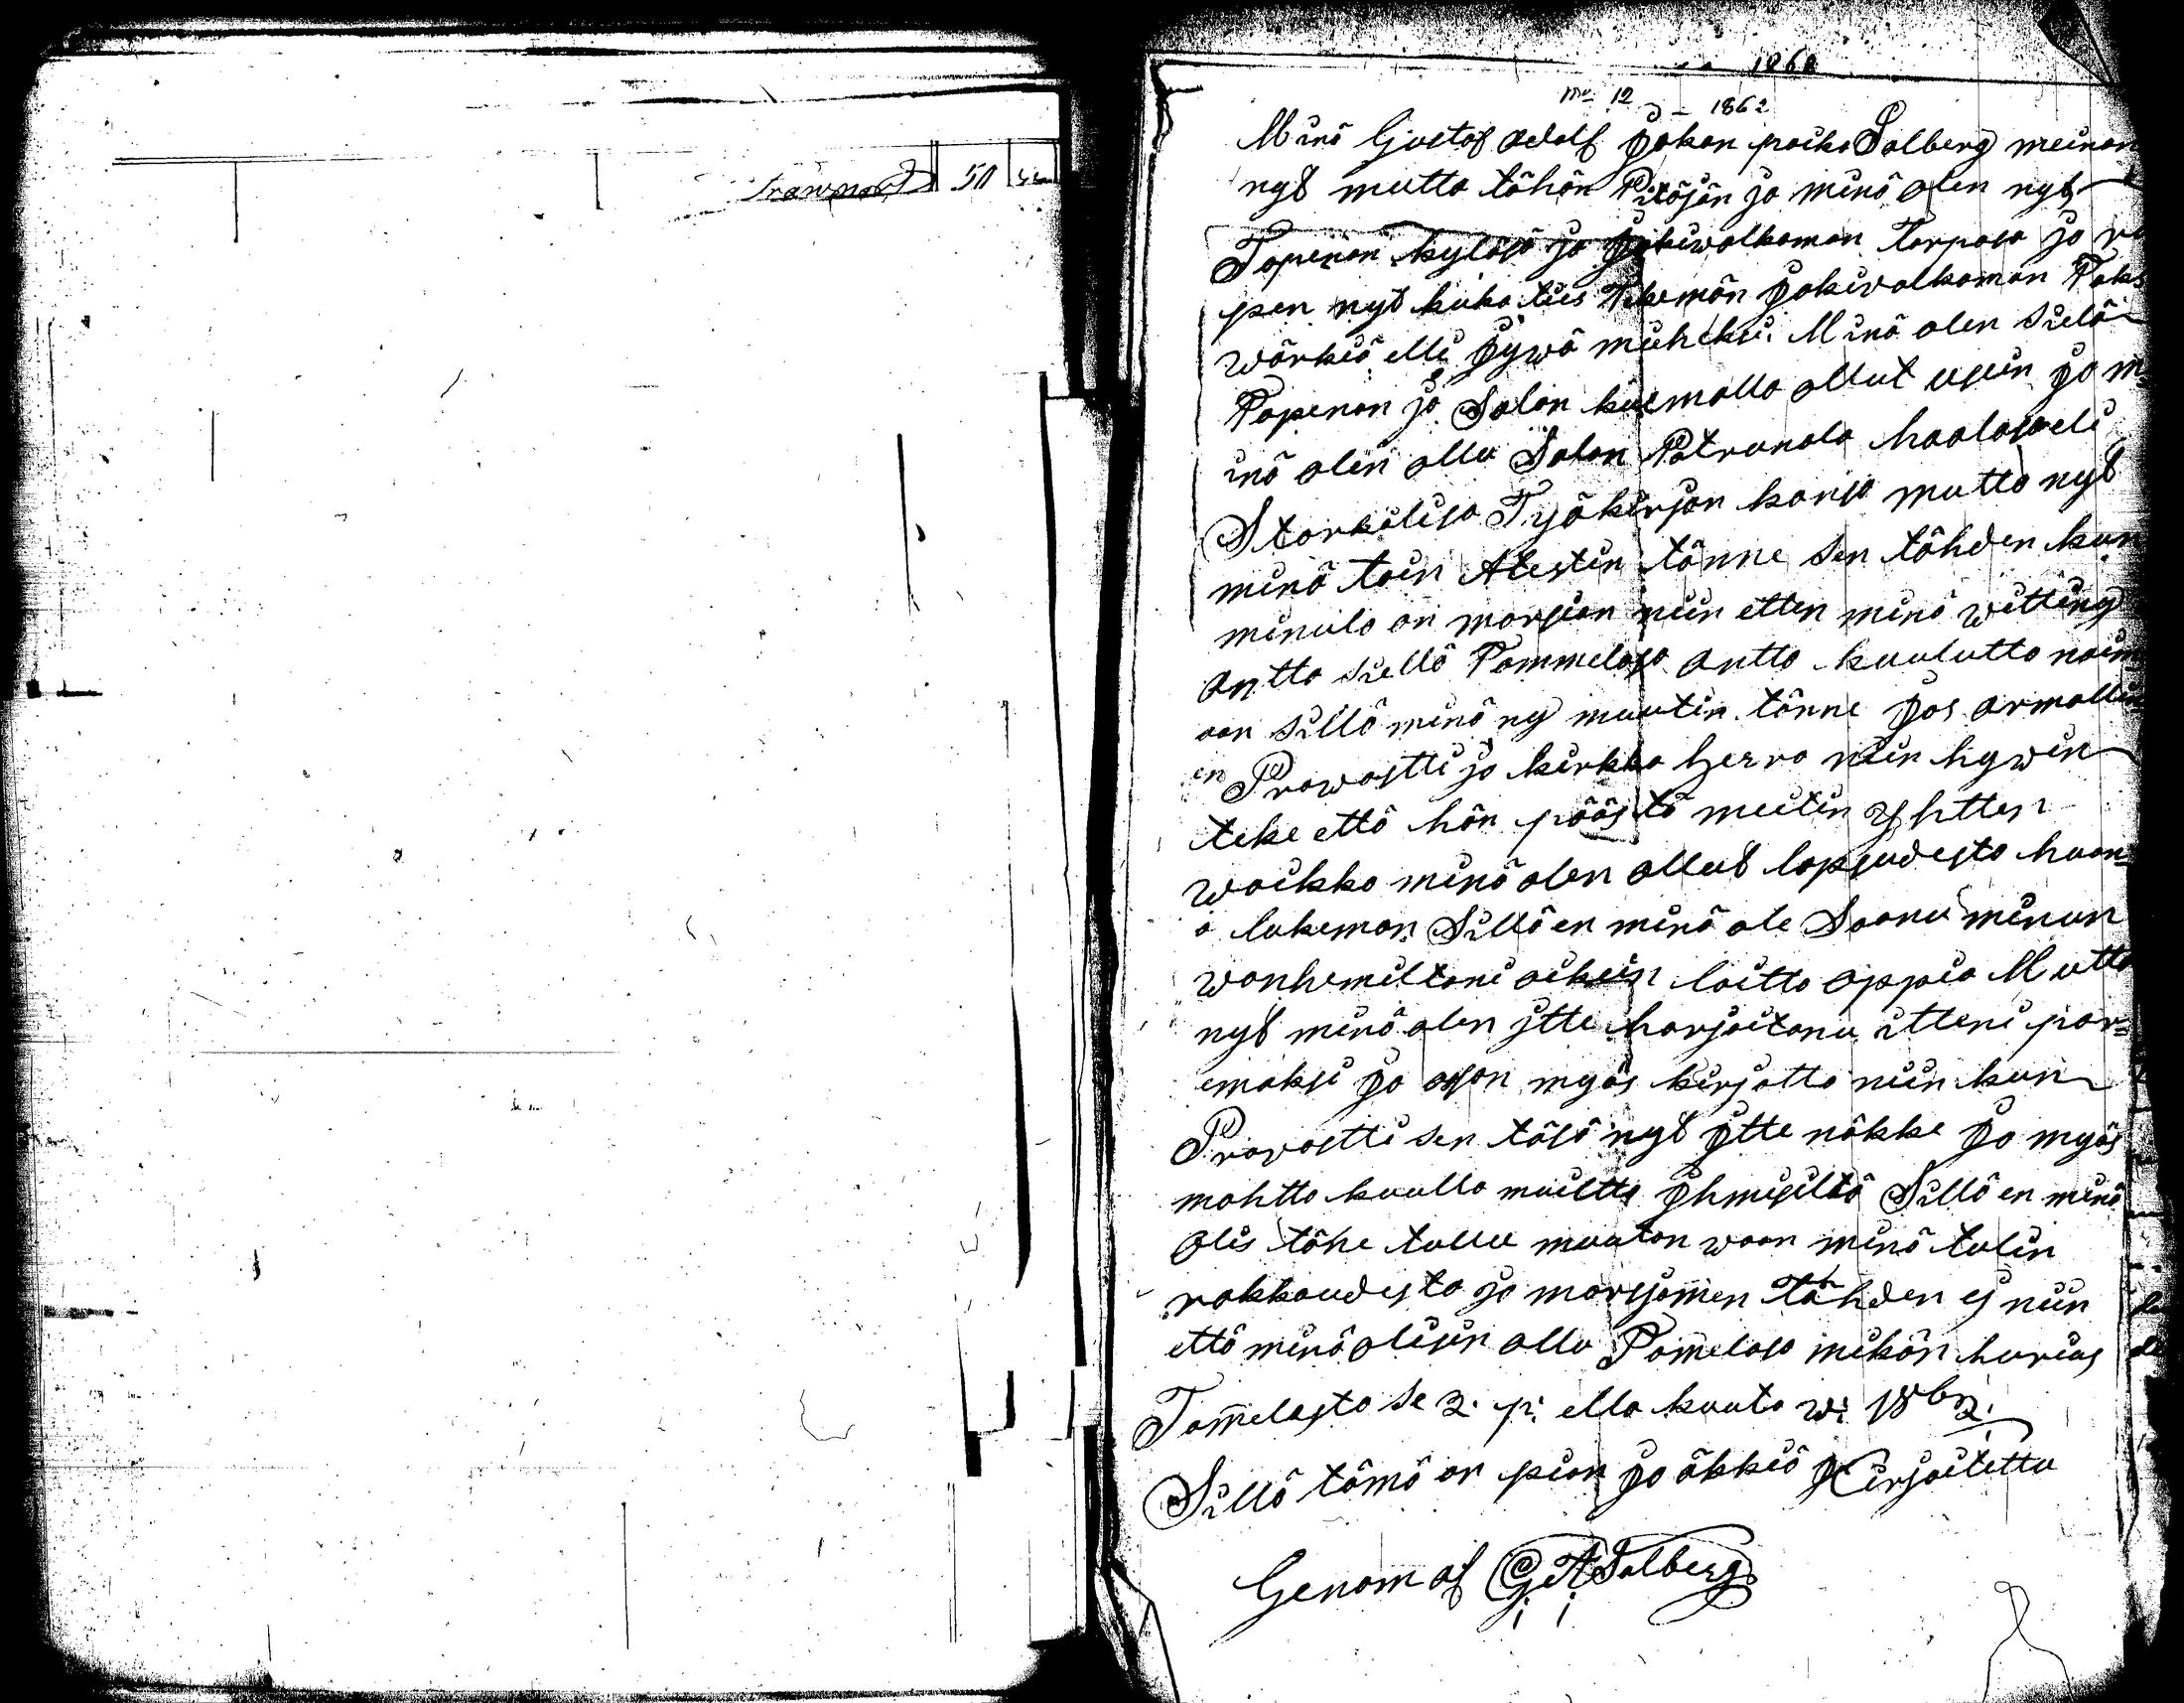 Transport 50
1862
No 12 - 1862
Minä Gustaf Adolf Jakan poika Salberg meinan
nyt mutta tähän Pitäjän ja minä olen nyt
Topenon kyläsä ja Jokiwalkaman Torpasa ja ru
pen nyt kuka tiis Tekemän Jokiwalkaman Taks
wärkiä elli Jywä miiheksi. Minä olen Sielä
Topenon ja Salon kulmalla ollut usein ja m=
inä olen ollu Salon Patrunala haalaseli
Storkälisä Työkirjan kansa mutta nyt
minä toin Atestin tänne sen tähden kun
minula on morsian niin etten minä witting
antta siellä Tammelasa antta kuulutta naim=
aan sillä minä ny muutin tänne Jos armallin=
en Prowastti ja kirkko herra niin hywin
teke että hän päästä meitin Yhtten
waikka minä olen ollut lapsudesta huan=
o lukeman Sillä en minä ole Saanu minun
wanhemiltani oikein laitto oppia Mutta
nyt minä olen jtte harjoitanu itteni par=
emaksi Ja osan myös kirjotta niin kun
Prowastti sen täsä nyt jtte näkke Ja myös
mahtta kuulla muiltta Jhmisiltä Sillä en minä
Olis tähe tullu muuton waan minä tulin
rakkaudesta ja morsjamen tähden ej niin
että minä olisin ollu Tamelasa mikän hurias
Tamelasta se 2. p: ella kuuta w: 1862.
Sillä tämä on pian ja äkkiä Kirjoitettu
Genom af G A Salberg